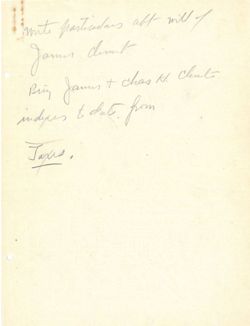 Write particulars abt will of
James Clunt
Bring James + Chas H. Clunts
indexes to date. from
Taxes.